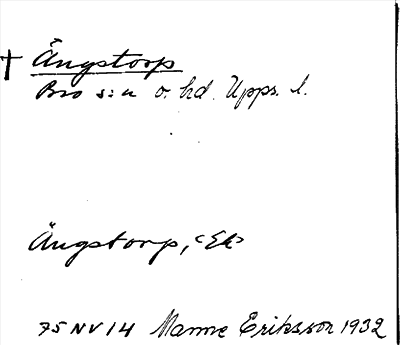 † Ängstorp
Bro s:n o. hd. Upps. l.
Ängstorp, <Ek>
75 NV 14 Manne Eriksson 1932